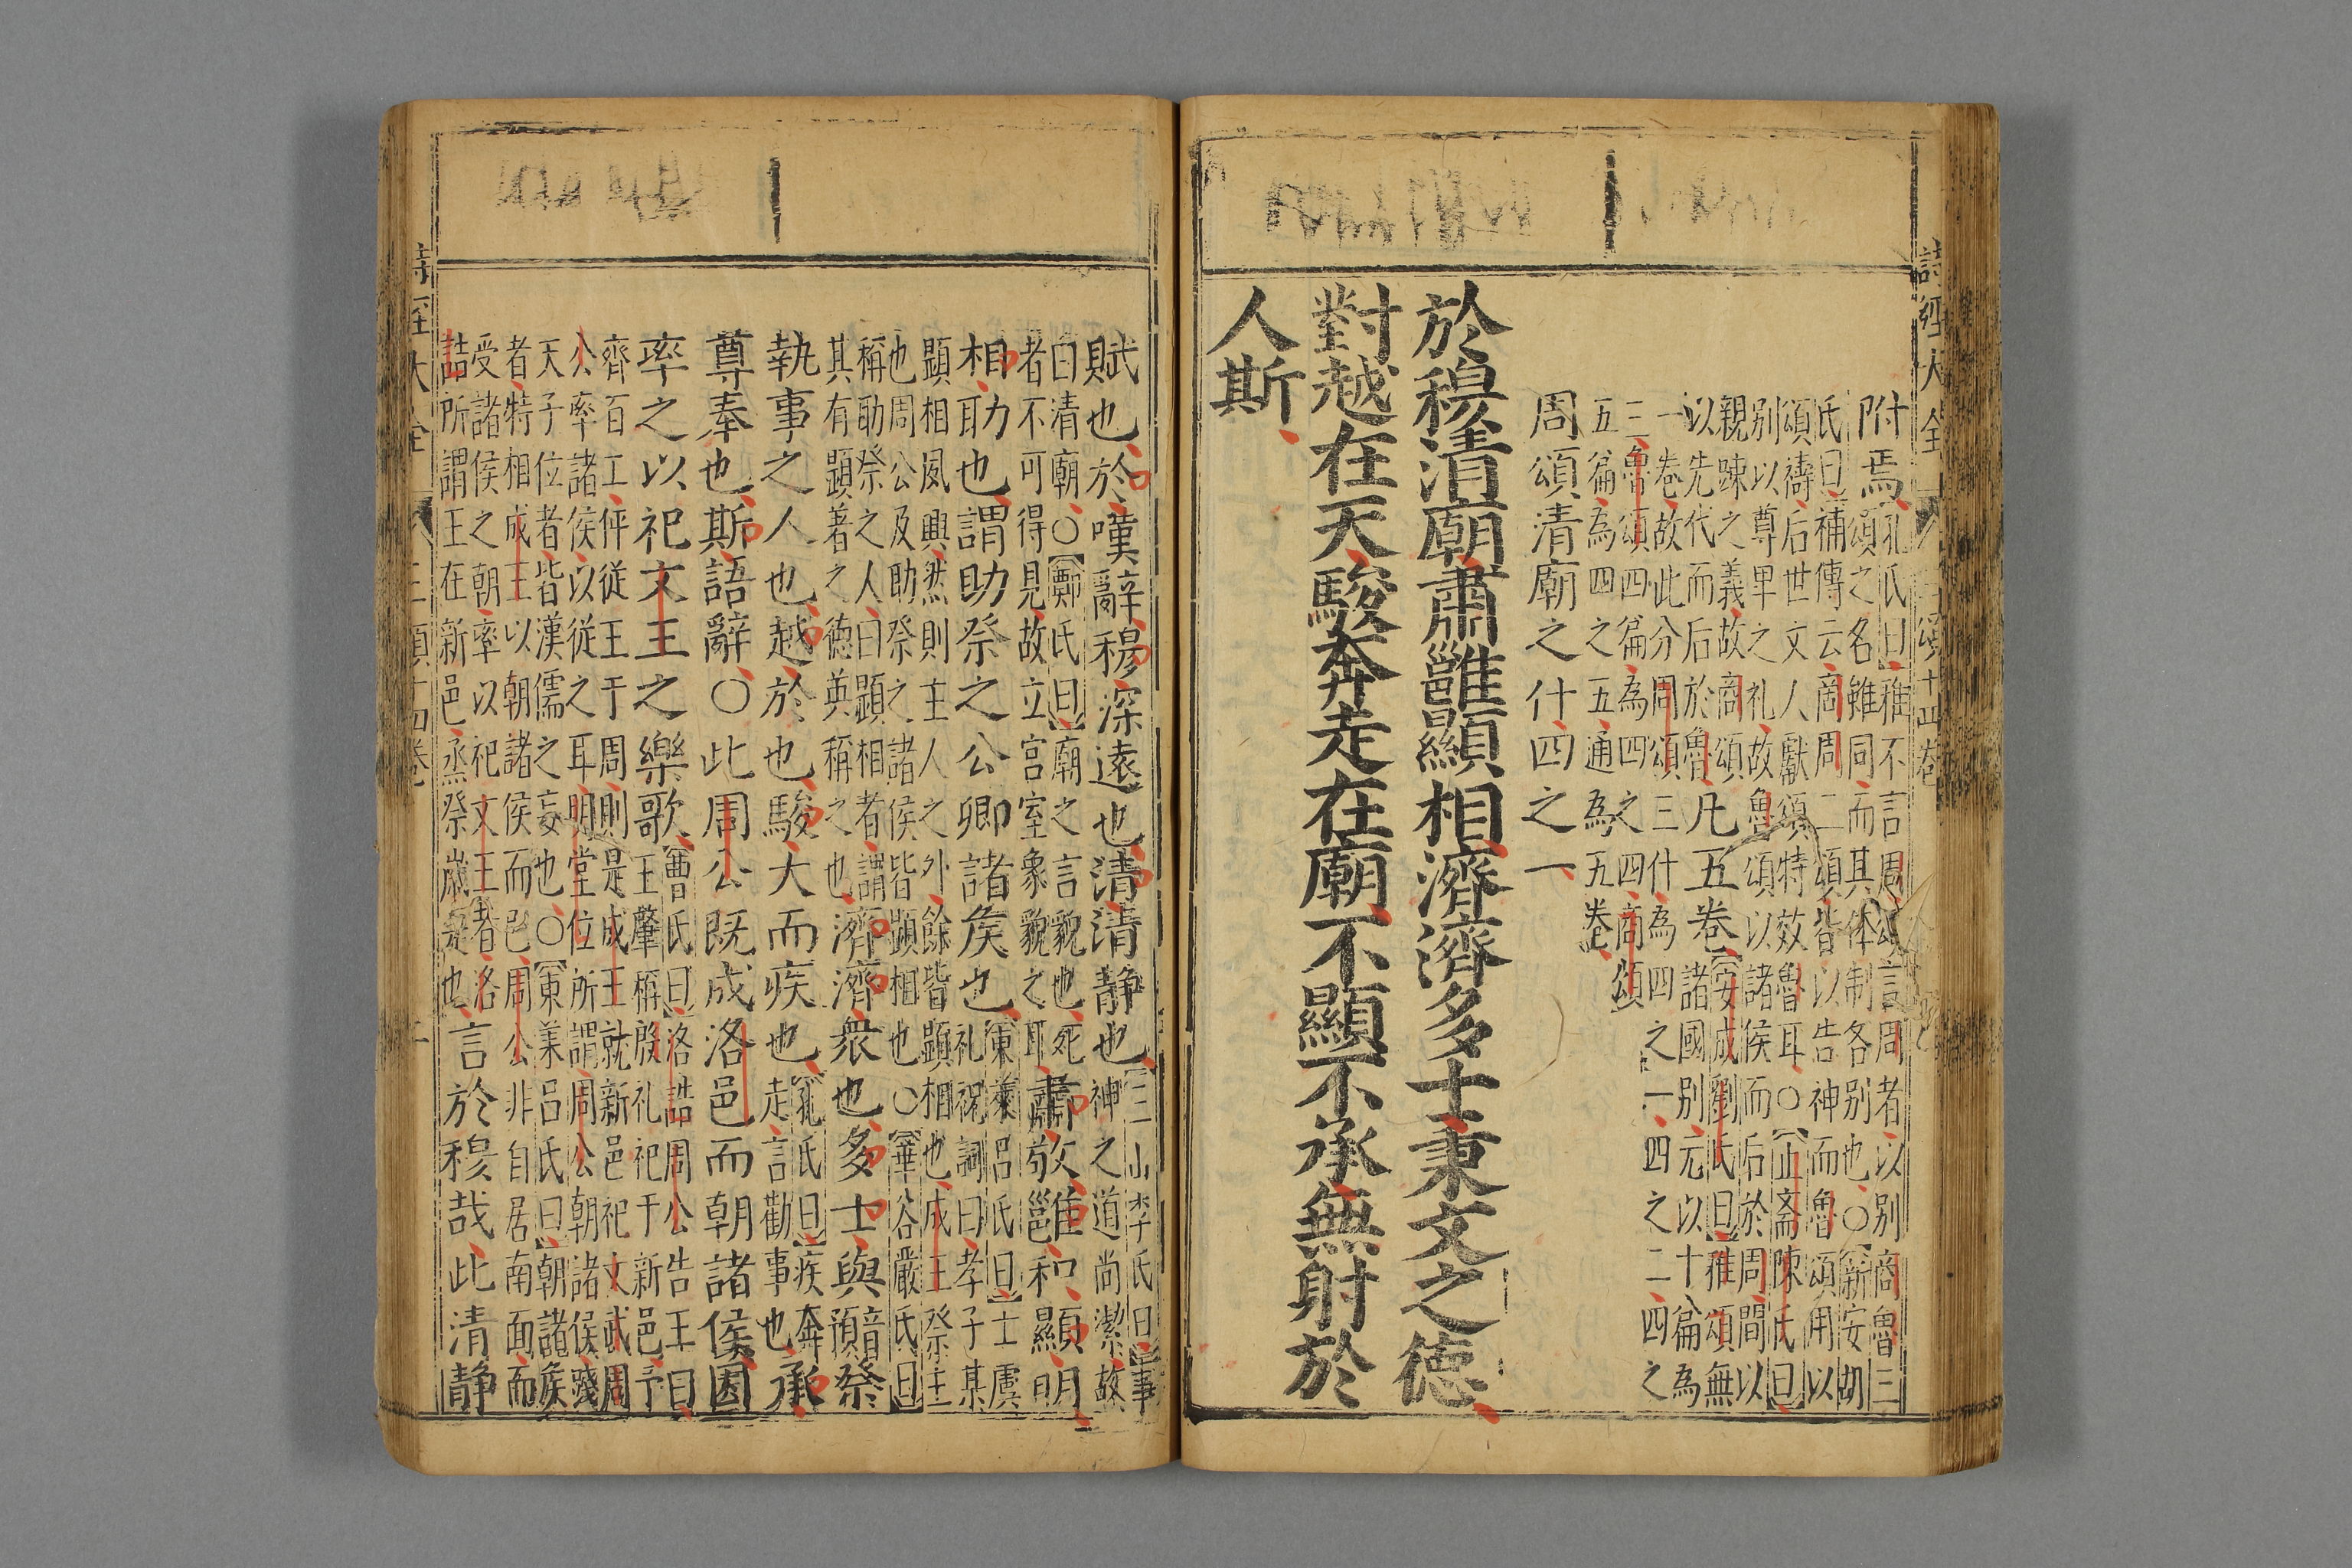 詩經大全
附焉孔氏曰雅不言周頌言周者以別商魯三
頌之名雖同而其体制各別也○新安胡
氏曰補傳云商周二頌皆以告神而魯頌用以
頌禱后世文人獻頌特效魯耳○疋斋陳氏曰
別以尊卑之礼故魯頌以諸侯而后於周間以
親踈之義故商頌
以先代而后於魯凡五卷安成劉氏曰雅頌無
諸國別元以十篇為
一卷故此分周頌三什為四之一四之二四之
三魯頌四篇為四之四商頌
五篇為四之五通為五卷
周頌清廟之什四之一
於穆清廟肅雝顯相濟濟多士秉文之德
對越在天駿奔走在廟不顯不承無射於
人斯
賦也於嘆辭穆深遠也清清静也三山李氏曰事
神之道尚潔故
曰清廟○鄭氏曰廟之言貌也死
者不可得見故立宮室象貌之耳肅敬雝和顯明
相助也謂助祭之公卿諸侯也東萊呂氏曰士虞
礼祝詞曰孝子某
顕相夙興然則主人之外餘皆顕相也成王祭主
也周公及助祭之諸侯皆顕相也○華谷嚴氏曰
稱助祭之人曰顕相者謂
其有顕著之德英稱之也濟濟衆也多士與音預祭
執事之人也越於也駿大而疾也孔氏曰疾奔
走言勸事也承
尊奉也斯語辭○此周公既成洛邑而朝諸侯因
率之以祀文王之樂歌曹氏曰洛誥周公告王曰
王肇稱殷礼祀于新邑予
齊百工伻従王于周則是成王就新邑祀文武周
公率諸侯以従之耳明堂位所謂周公朝諸侯踐
天子位者皆漢儒之妄也○東萊呂氏曰朝諸侯
者特相成王以朝諸侯而已周公非自居南面而
受諸侯之朝率以祀文王者洛
誥所謂王在新邑烝祭歳是也言於穆哉此清静